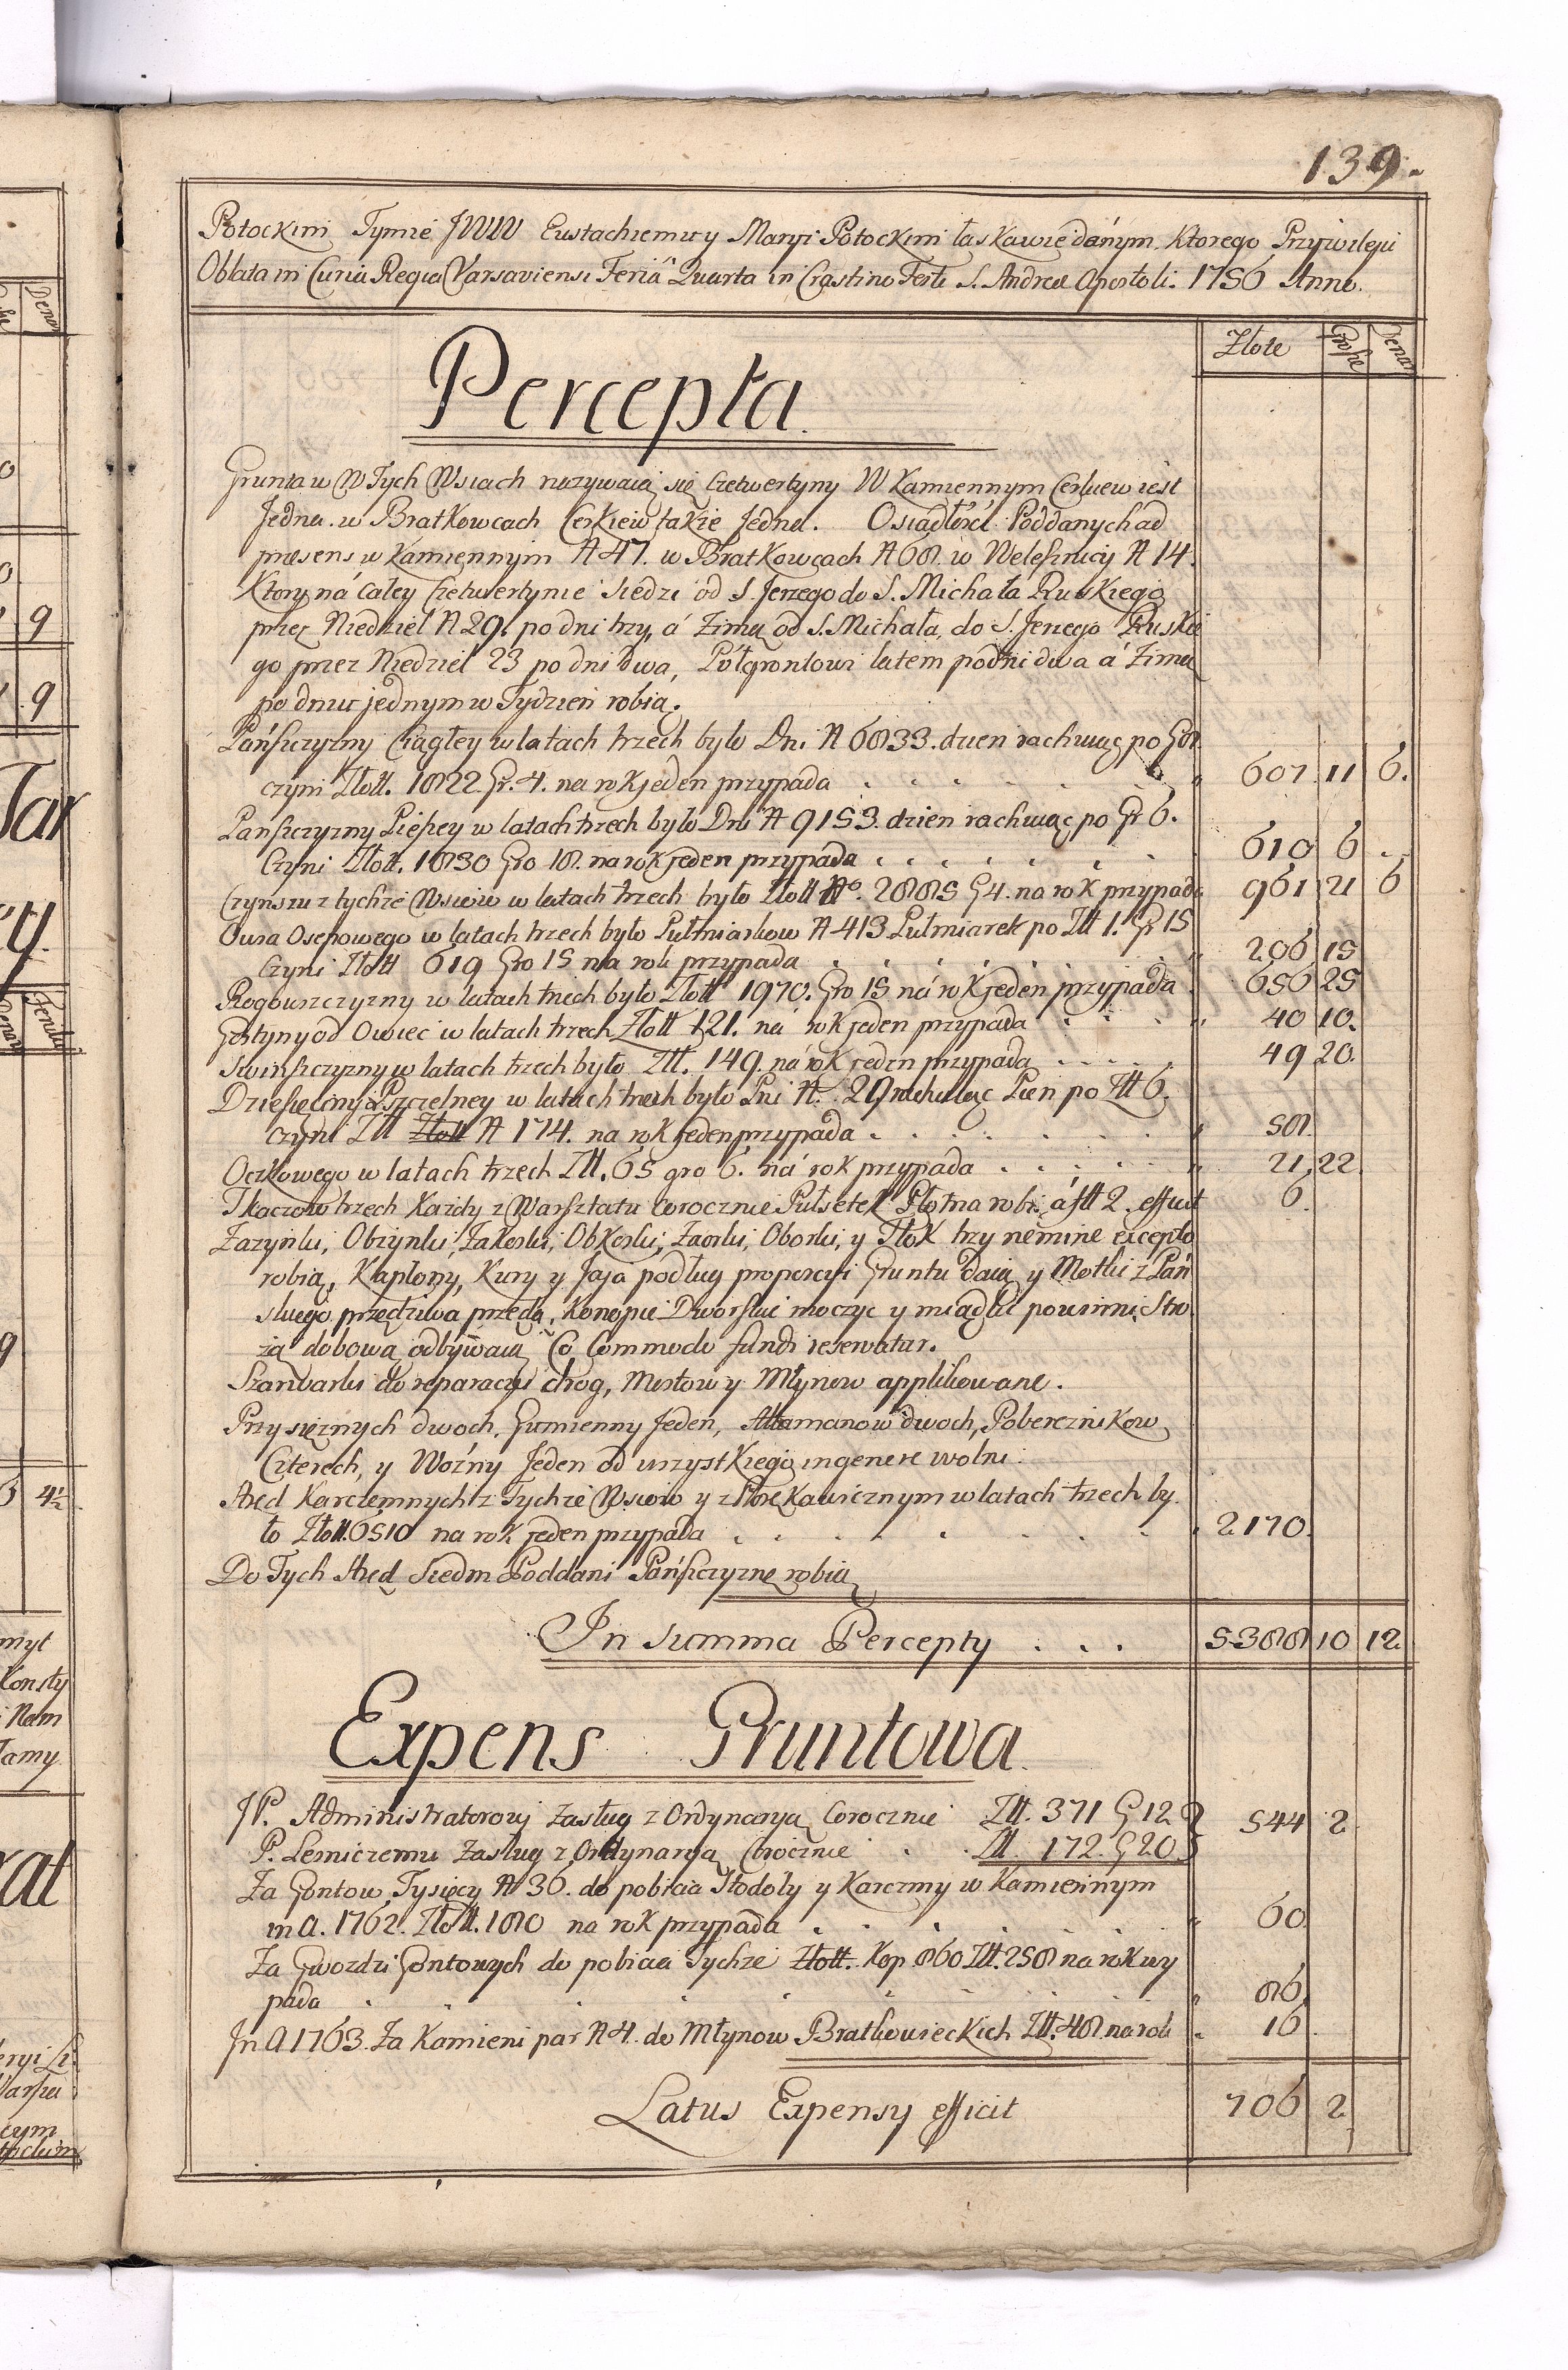 139.
Potockim Tymże JWW Eustachiemu y Maryi Potockim łaskawie danym. Ktorego Przywileju
Oblata in Curia Regia Varsaviensi Feriâ Quarta in Crastino Festi S. Andreæ Apostoli. 1756 Anno.
Złote Grosze Denar
Percepta.
Grunta w Tych Wsiach nazywaią się Czetwertyny W Kamiennym Cerkiew iest
Jedna. w Bratkowcach Cerkiew także Jedna. Osiadłości Poddanych ad
præsens w Kamiennym N 47. w Bratkowcach N 68. w Welesznicy N 14.
Ktory ná całey Czetwertynie siedzi od S. Jerzego do S. Michała Ruskiego
przez Niedziel N 29. po dni trzy, á Zimą od S. Michała, do S. Jerzego Ruskie
go przez Niedziel 23 po dni dwa, Połgrontowi latem po dni dwa á Zimą
po dniu jednym w Tydzień robią.
Pańszczyzny Ciągłey w latach trzech było Dni N 6833. dzien rachuiąc po Gr 8
czyni Złott. 1822 Gr. 4. na rok jeden przypada 607 11 6.
Pańszczyzny Pieszey w latach trzech było Dni N 9153. dzien rachuiąc po Gr 6.
Czyni Złott. 1830 Gro 18. na rok jeden przypada 610 6
Czynszu z tychże Wsiow w latach trzech było Złott No. 2885 G 4. na rok przypada 961 21 6
Owsa Osepowego w latach trzech było Pułmiarkow N 413 Pułmiarek po Złł 1. Gr 15
Czyni Złott 619 Gro 15 na rok przypada 206 15
Rogowszczyzny w latach trzech było Złott 1970. Gro 15 ná rok jeden przypada 656 25
Gostyny od Owiec w latach trzech Złott 121. ná rok jeden przypada 40 10.
Swinszczyzny w latach trzech było Złł. 149. ná rok jeden przypada 49 20.
Dziesięciny Pszczelney w latach trzech było Pni N. 29 rachuiąc Pień po Złł 6.
czyni Złł Złott N 174. na rok jeden przypada 58.
Oczkowego w latach trzech Złł. 65 gro 6. ná rok przypada 21 22
Tkaczow trzech Każdy z Warsztatu corocznie Pułsetek Płotna robi, á fłł 2. efficit 6.
Zazynki, Obzynki, Zakoski, Obkoski, Zaorki, Oborki, y Tłok trzy nemine excepto
robią, Kapłony, Kury y Jaja podług proporcyi Gruntu daią y Motki z Pań
skiego przędziwa przędą, Konopie Dworskie moczyć y miądlić powinni, Stro
żą dobową odbywaią Co Commodo fundi reservatur.
Szarwarki do reparacyi drog, Mostow y Młynow applikowane.
Przysiężnych dwoch, Gumienny Jeden, Attamanow dwoch, Pobereznikow
Czterech, y Woźny Jeden od wszystkiego in genere wolni.
Aręd Karczemnych z Tychże Wsiow y z Storckawicznym w latach trzech by
ło Złott. 6510 na rok jeden przypada 2170.
Do Tych Aręd Siedm Poddani Pańszczyznę robią
In Summa Percepty 5388 10 12
Expens Gruntowa.
JP. Administratorowi Zasług z Ordynaryą Corocznie Złł. 371 G 12 544 2
P. Lesniczemu Zasług z Ordynaryą Corocznie Złł. 172. G 20
Za Gontow Tysięcy N 36. do pobicia Stodoły y Karczmy w Kamiennym
in A. 1762. Złott. 180 na rok przypada 60
Za Gwozdzi Gontowych do pobicia Tychże Złott. Kop 860 Złł. 258 na rok wy
pada 86.
In A 1763. Za Kamieni par N 4. do Młynow Bratkowieckich Złł. 48. na rok 16
Latus Expensy efficit 706 2